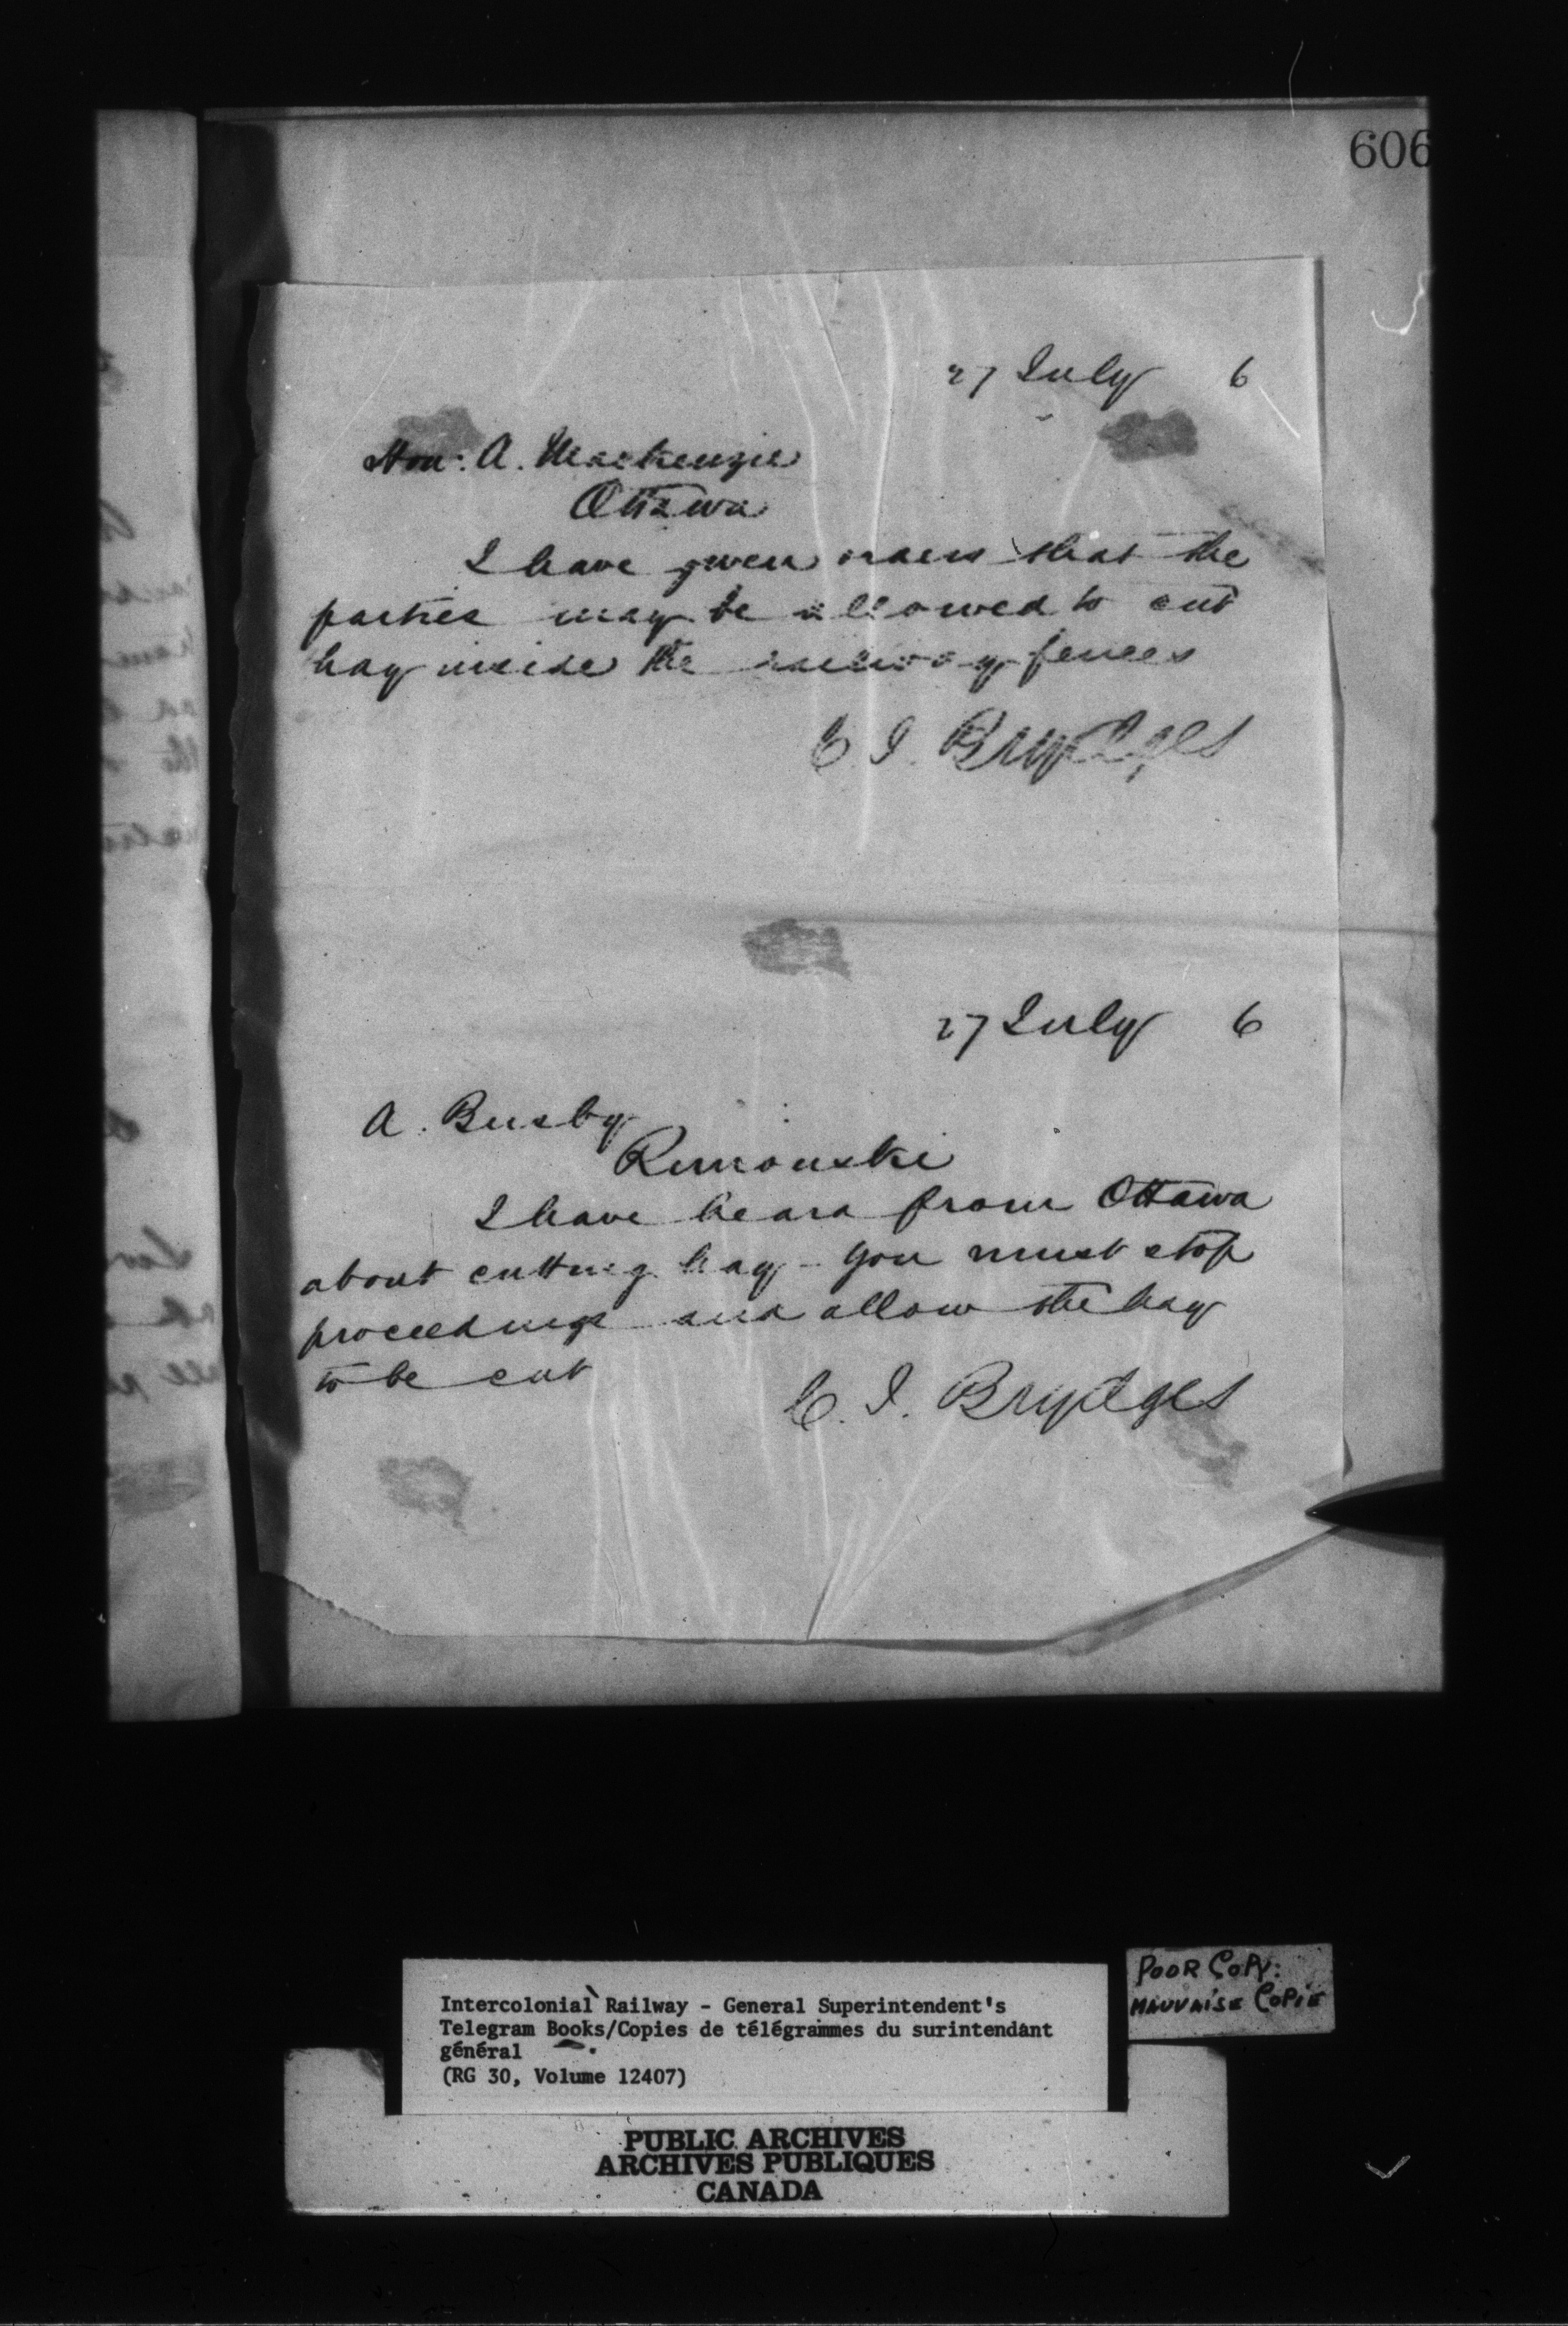 606
27 July 6
Hon: A. Mackenzie
Ottawa
I have given orders that the
parties may be allowed to cut
hay inside the railway fences
C. J. Brydges
27 July 6
A. Busby
Rimouski
I have heard from Ottawa
about cutting hay - you must stop
proceedings and allow the hay
to be cut
C. J. Brydges
POOR COPY:
MAUVAISE COPIE
Intercolonial Railway - General Superintendent's
Telegram Books/Copies de télégrammes du surintendant
général
(RG 30, Volume 12407)
PUBLIC ARCHIVES
ARCHIVES PUBLIQUES
CANADA